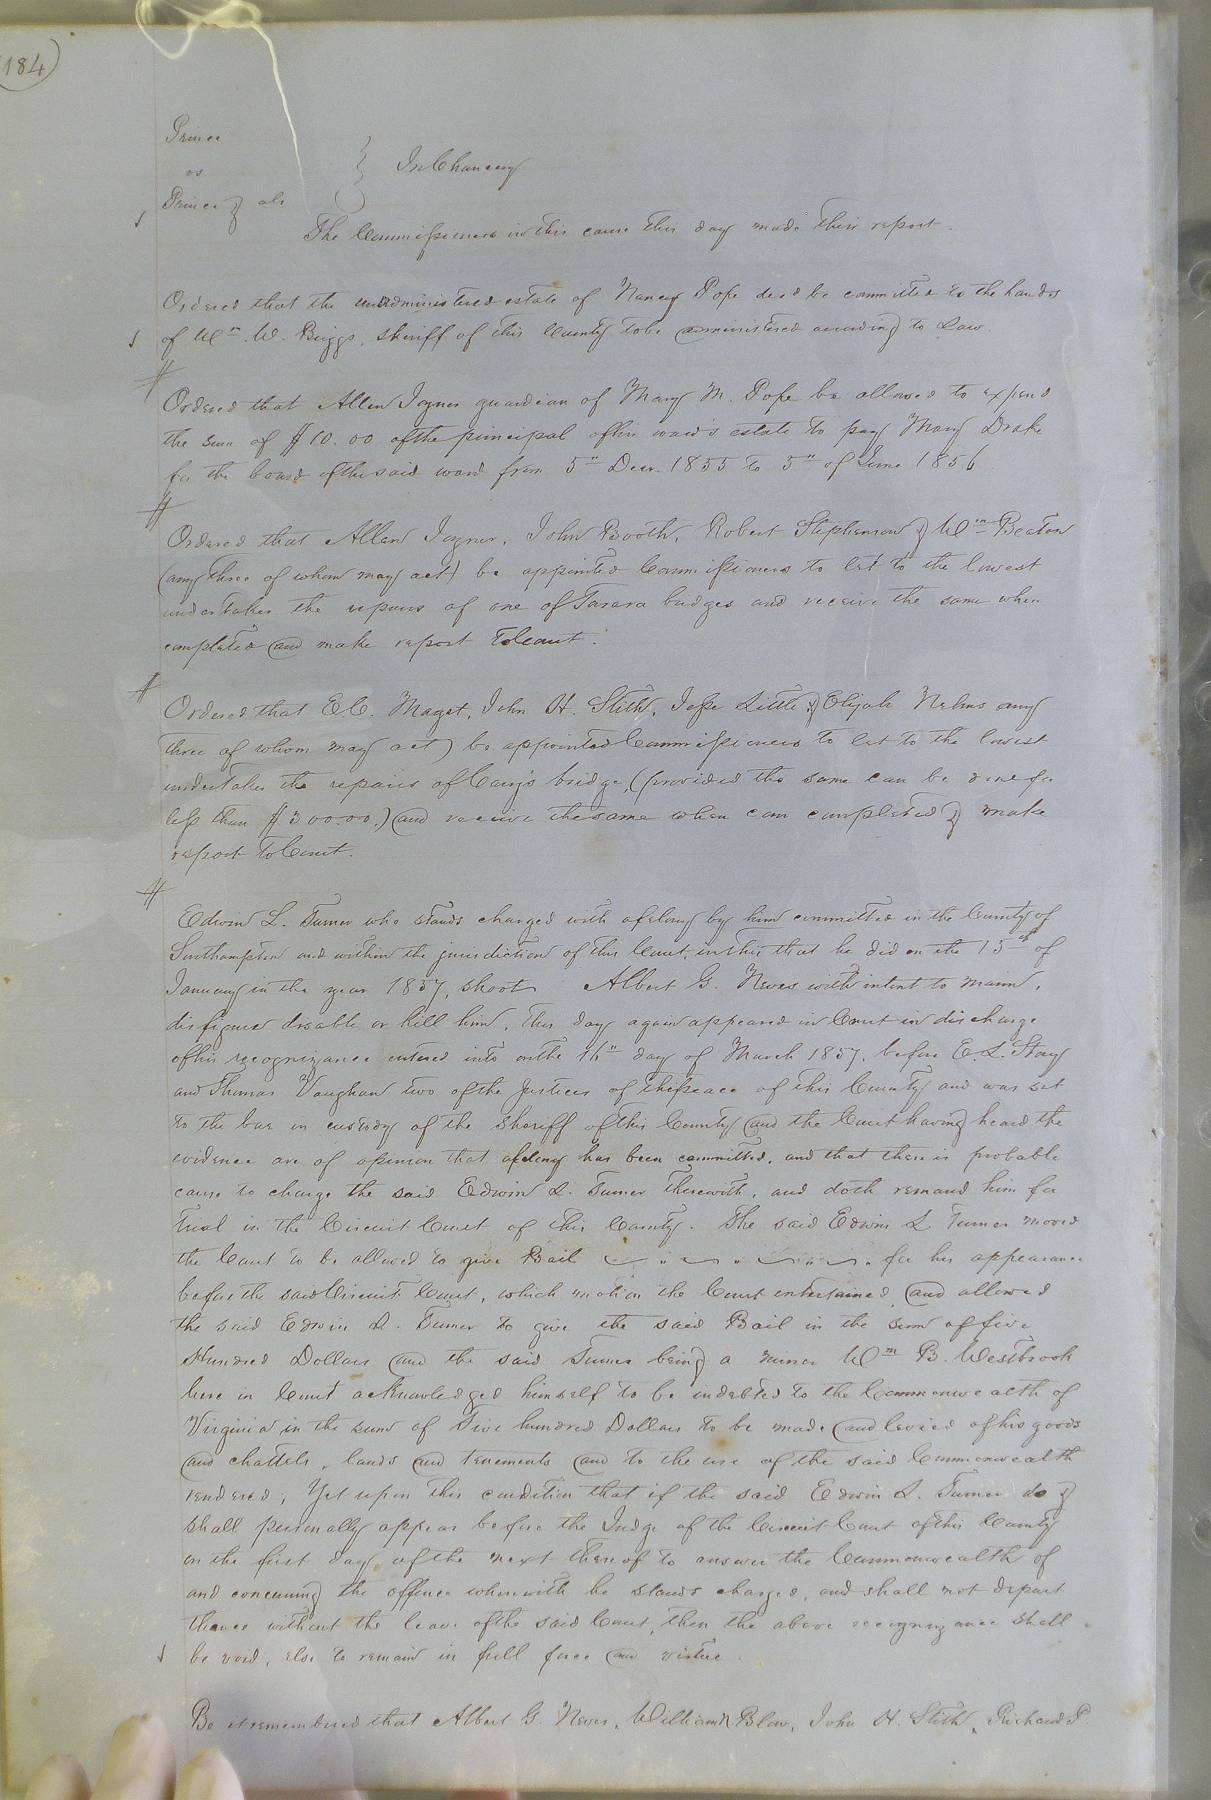 184
Prince
vs
Prince & als
In Chancery
The Commissioners in this cause this day made their report.
Ordered that the unadministered estate of Nancy Pope decd be committed to the hands
of Wm. W. Briggs, sheriff of this County to be administered according to Law.
Ordered that Allen Joyner guardian of Mary M. Pope be allowed to expend
the sum of $10.00 of the principal of his ward's estate to pay Mary Drake
for the board of the said ward from 5th Decr. 1855 to 5th of June 1856
Ordered that Allen Joyner, John Booth, Robert Stephenson & Wm Beaton
(any three of whom may act) be appointed Commissioners to let to the lowest
undertaker the repairs of one of Tarara bridges and receive the same when
completed and make report to Court.
Ordered that E C. Maget, John H. Stith, Jesse Little & Elijah Nelms any
three of whom may act) be appointed Commissioners to let to the lowest
undertaker the repairs of Cary's bridge, (provided the same can be done for
less than $300.00.) and receive the same when com completed & make
report to Court.
Edwin L. Turner who stands charged with a felony by him committed in the County of
Southampton and within the jurisdiction of this Court, in this that he did on the 15th of
January in the year 1857, shoot Albert G. Neves with intent to maim,
disfigure disable or kill him, this day again appeared in Court in discharge
of his recognizance entered into on the 16th day of March 1857, before E. L. Story
and Thomas Vaughan two of the Justices of the peace of this County and was set
to the bar in custody of the Sheriff of this County and the Court having heard the
evidence are of opinion that a felony has been committed, and that there is probable
cause to charge the said Edwin L. Turner therewith, and doth remand him for
trial in the Circuit Court of this County. The said Edwin L Turner moved
the Court to be allowed to give Bail for his appearance
before the said Circuit Court, which motion the Court entertained, and allowed
the said Edwin L. Turner to give the said Bail in the sum of five
Hundred Dollars and the said Turner being a minor Wm B. Westbrook
here in Court acknowledged himself to be indebted to the Commonwealth of
Virginia in the sum of Five hundred Dollars to be made and levied of his goods
and chattels, lands and tenements and to the use of the said Commonwealth
rendered; Yet upon this condition that if the said Edwin L. Turner do &
shall personally appear before the Judge of the Circuit Court of this County
on the first day of the next thereof to answer the Commonwealth of
and concerning the offence wherewith he stands charged, and shall not depart
thence without the leave of the said Court, then the above recognizance shall
be void, else to remain in full force and virtue.
Be it remembered that Albert G. Neves, William Blow, John H. Stith, Richard P.